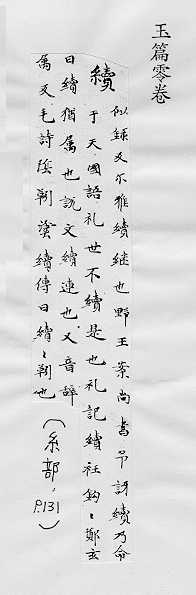 玉篇零卷
續 似録又尔雅續継也野王案尚書予訝續乃命
于天國語礼世不續是也礼記續衽鈎〻鄭玄
曰續猶属也說文續連也又音辞
属又毛詩陰靷鋈續傳曰續〻靷也
(糸部,P.131)